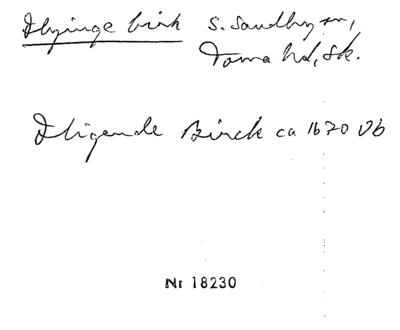 Flyinge birk S. Sandby sn,
Torna hd, Sk.
Fligende Birck ca 1670 Vb
Nr 18230